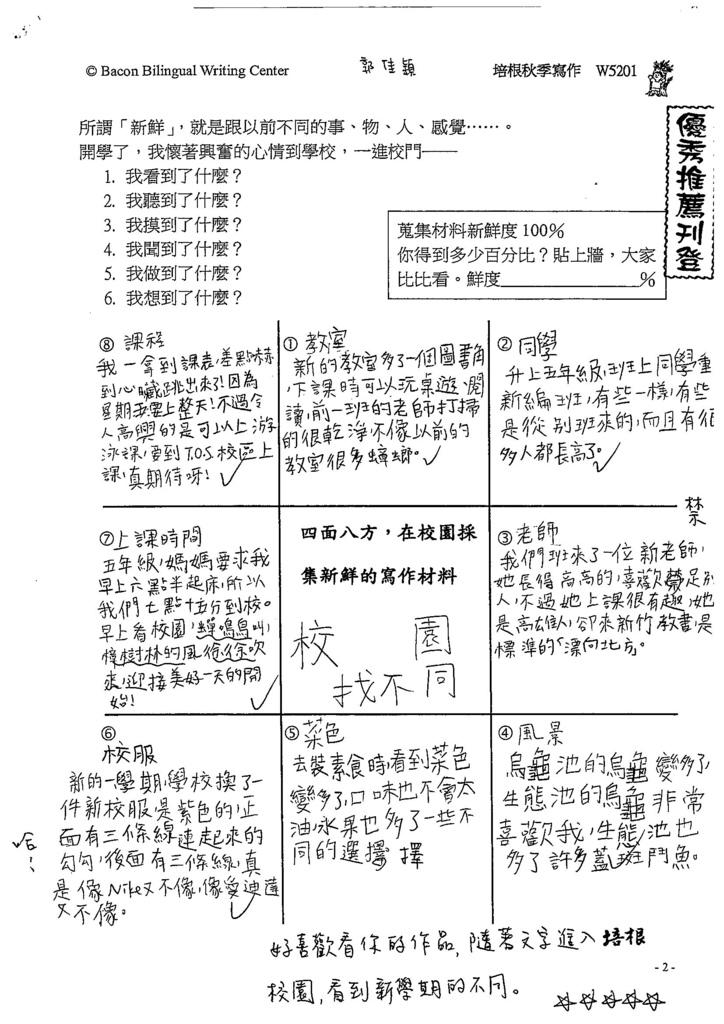 © Bacon Bilingual Writing Center 郭佳穎 培根秋季寫作 W5201
優秀推薦刊登
所謂「新鮮」，就是跟以前不同的事、物、人、感覺……。
開學了，我懷著興奮的心情到學校，一進校門——
1. 我看到了什麼？
2. 我聽到了什麼？
3. 我摸到了什麼？
4. 我聞到了什麼？
5. 我做到了什麼？
6. 我想到了什麼？
蒐集材料新鮮度 100%
你得到多少百分比？貼上牆，大家
比比看。鮮度________________%
⑧ 課程
我一拿到課表，差點嚇
到心臟跳出來?!因為
星期五要上整天!不過令
人高興的是可以上游
泳課，要到T.O.S校區上
課，真期待呀!
① 教室
新的教室多了一個圖書角
，下課時可以玩桌遊、閱
讀，前一班的老師打掃
的很乾淨不像以前的
教室很多蟑螂。
② 同學
升上五年級，班上同學重
新編班，有些一樣，有些
是從別班來的，而且有很
多人都長高了。
⑦上課時間
五年級，媽媽要求我
早上六點半起床，所以
我們七點十五分到校。
早上看校園，蟬鳴鳥叫，
樟樹林的風徐徐吹
來，迎接美好一天的開
始!
四面八方，在校園採
集新鮮的寫作材料
校 園
找不同
禁
③老師
我們班來了一位新老師，
她長得高高的，喜歡禁足別
人，不過她上課很有趣，她
是高雄人，卻來新竹教書，是
標準的「漂向北方」。
⑥
校服
新的一學期，學校換了一
件新校服，是紫色的，正
面有三條線連起來的
勾勾，後面有三條線，真
是像Nike又不像，像愛迪達
又不像。
哈!
⑤ 菜色
去裝素食時，看到菜色
變多了，口味也不會太
油，水果也多了一些不
同的選擇 擇
④ 風景
烏龜池的烏龜變多了，
生態池的烏龜非常
喜歡我，生態池也
多了許多蓋斑鬥魚。
好喜歡看你的作品，隨著文字進入培根
校園，看到新學期的不同。
☆☆☆☆☆
-2-